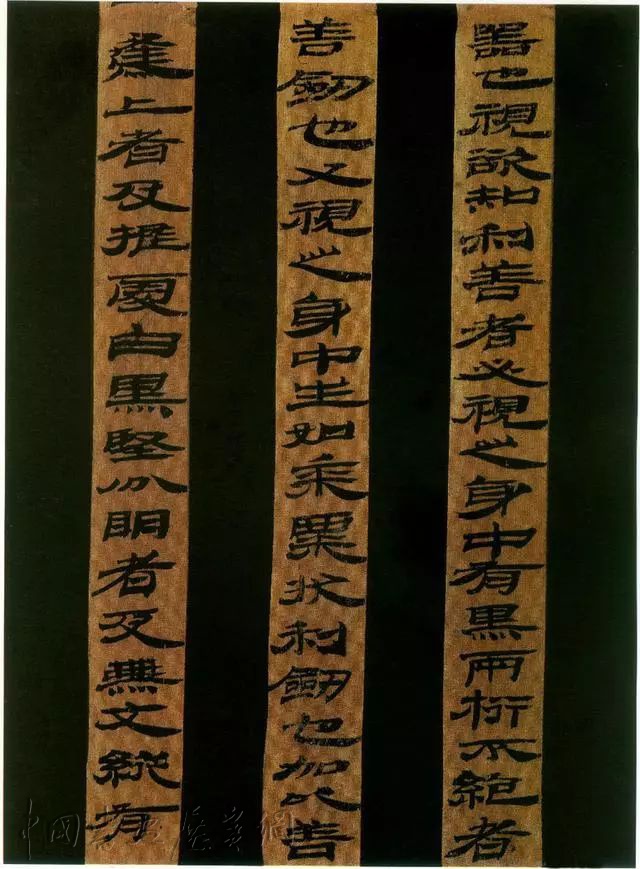 器也視欲知利善者必視之身中有黑兩桁不絕者
善劍也又視之身中生如黍粟狀利劍也加以善
上者及推處白黑堅分明者及無文縱有
中国